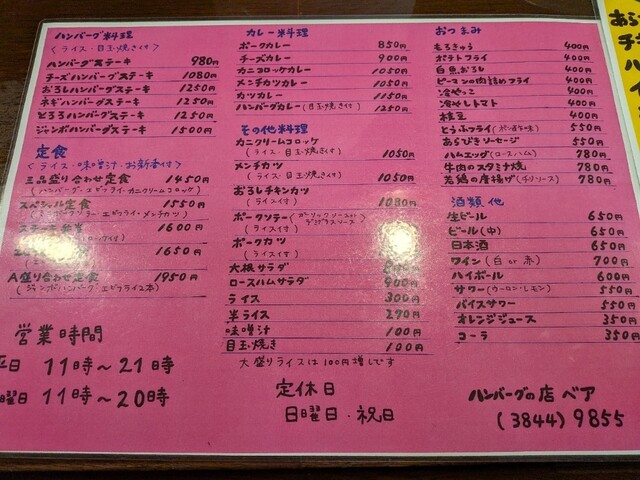 ハンバーグ料理
(ライス・目玉焼き付)
ハンバーグステーキ 980円
チーズハンバーグステーキ 1080円
おろしハンバーグステーキ 1250円
ネギハンバーグステーキ 1250円
とろろハンバーグステーキ 1250円
ジャンボハンバーグステーキ 1500円
定食
(ライス・味噌汁・お新香付)
三品盛り合わせ定食 1450円
(ハンバーグ・エビフライ・カニクリームコロッケ)
スペシャル定食 1550円
エビフライ・メンチカツ)
1600円
1650円
A盛り合わせ定食 1950円
(ジャンボハンバーグ・エビフライ2本)
営業時間
平日 11時～21時
曜日 11時～20時
カレー料理
ポークカレー 850円
チーズカレー 900円
カニコロッケカレー 1050円
メンチカツカレー 1050円
カツカレー 1150円
ハンバーグカレー(目玉焼き付) 1250円
その他料理
カニクリームコロッケ
(ライス・目玉焼き付) 1050円
メンチカツ
(ライス・目玉焼き付) 1050円
おろしチキンカツ
(ライス付) 1080円
ポークソテー (ガーリックソース or デミグラスソース)
(ライス付)
ポークカツ
(ライス付)
大根サラダ
ロースハムサラダ 900円
ライス 300円
半ライス 270円
味噌汁 100円
目玉焼き 100円
大盛りライスは100円増しです
定休日
日曜日・祝日
おつまみ
もろきゅう 400円
ポテトフライ 400円
白魚おろし 400円
ピーマンの肉詰めフライ 400円
冷やっこ 400円
冷やしトマト 400円
枝豆 400円
とうふフライ(ポン酢味) 550円
あらびきソーセージ 550円
ハムエッグ(ロースハム) 780円
牛肉のスタミナ焼 780円
若鶏の唐揚げ(チリソース) 780円
酒類 他
生ビール 650円
ビール(中) 650円
日本酒 650円
ワイン(白 or 赤) 700円
ハイボール 600円
サワー(ウーロン・レモン) 550円
バイスサワー 550円
オレンジジュース 350円
コーラ 350円
ハンバーグの店 ベア
(3844)9855